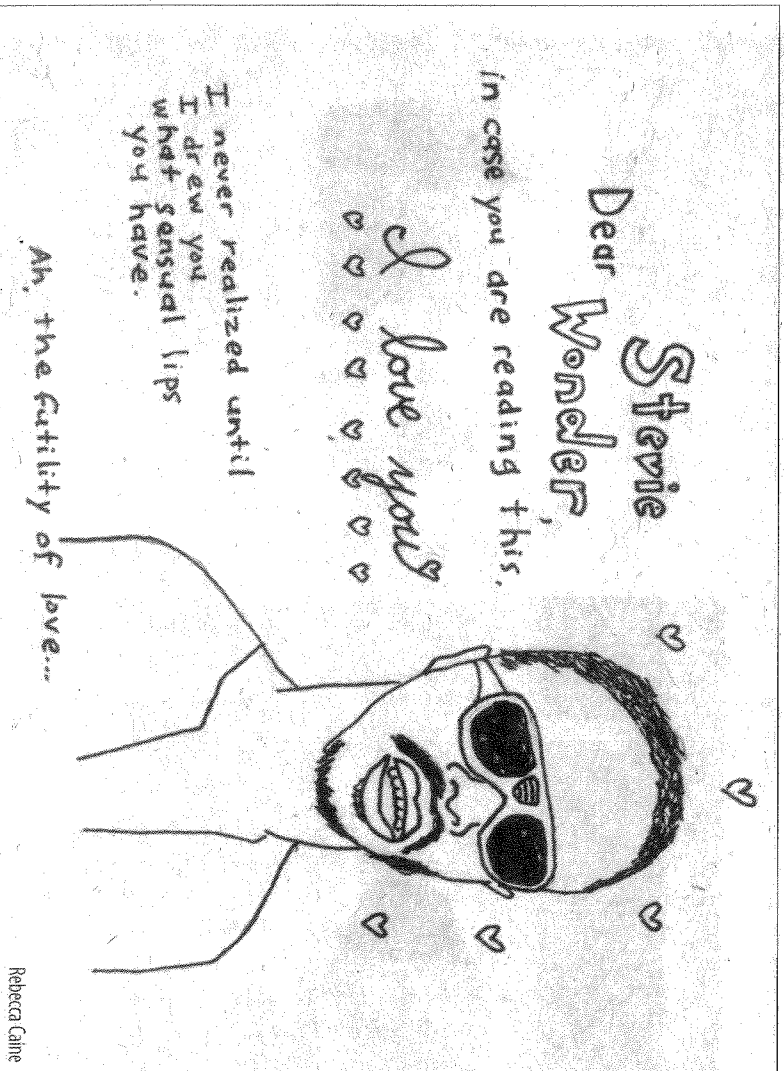 Dear Stevie
Wonder,
in case you are reading this,
I love you
I never realized until
I drew you
what sensual lips
you have.
Ah, the futility of love...
Rebecca Caine